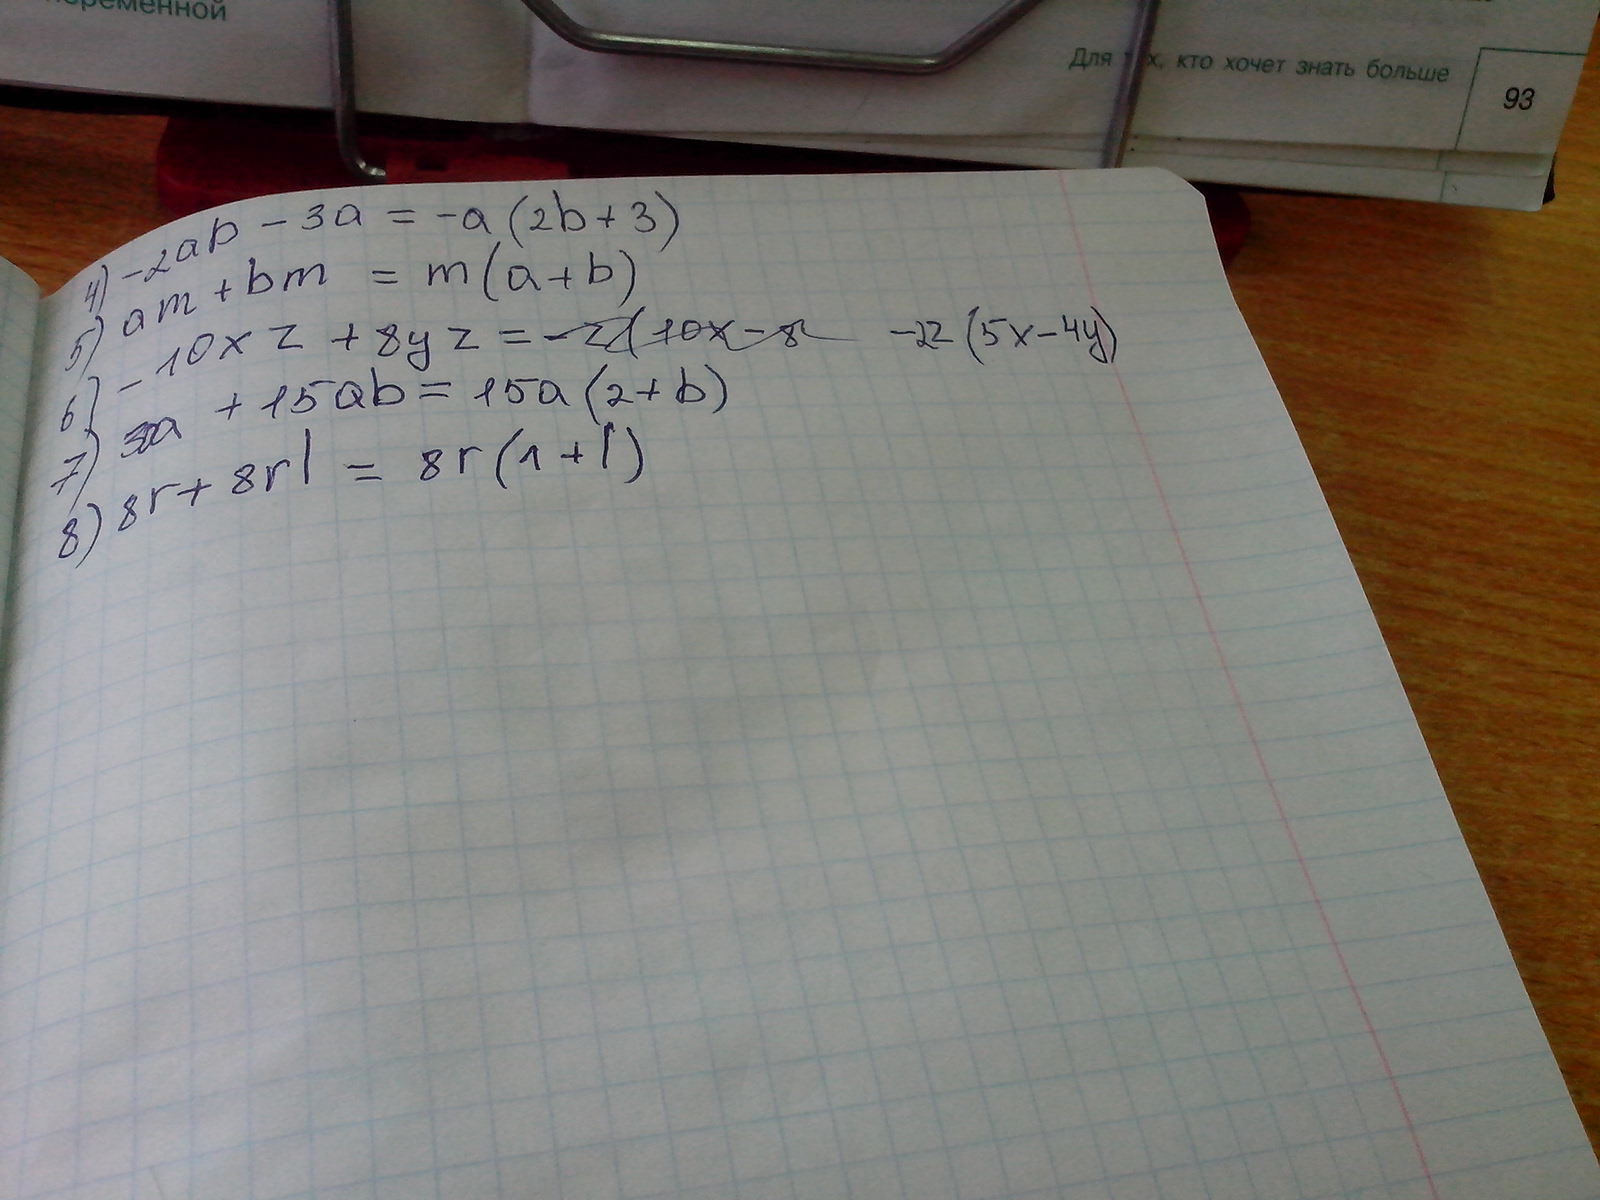 переменной
Для тех, кто хочет знать больше
93
4) -2ab - 3a = -a (2b + 3)
5) am + bm = m (a + b)
6) -10xz + 8yz = -z(10x - 8 -2z (5x - 4y)
7) 30a + 15ab = 15a (2 + b)
8) 8r + 8rl = 8r (1 + l)